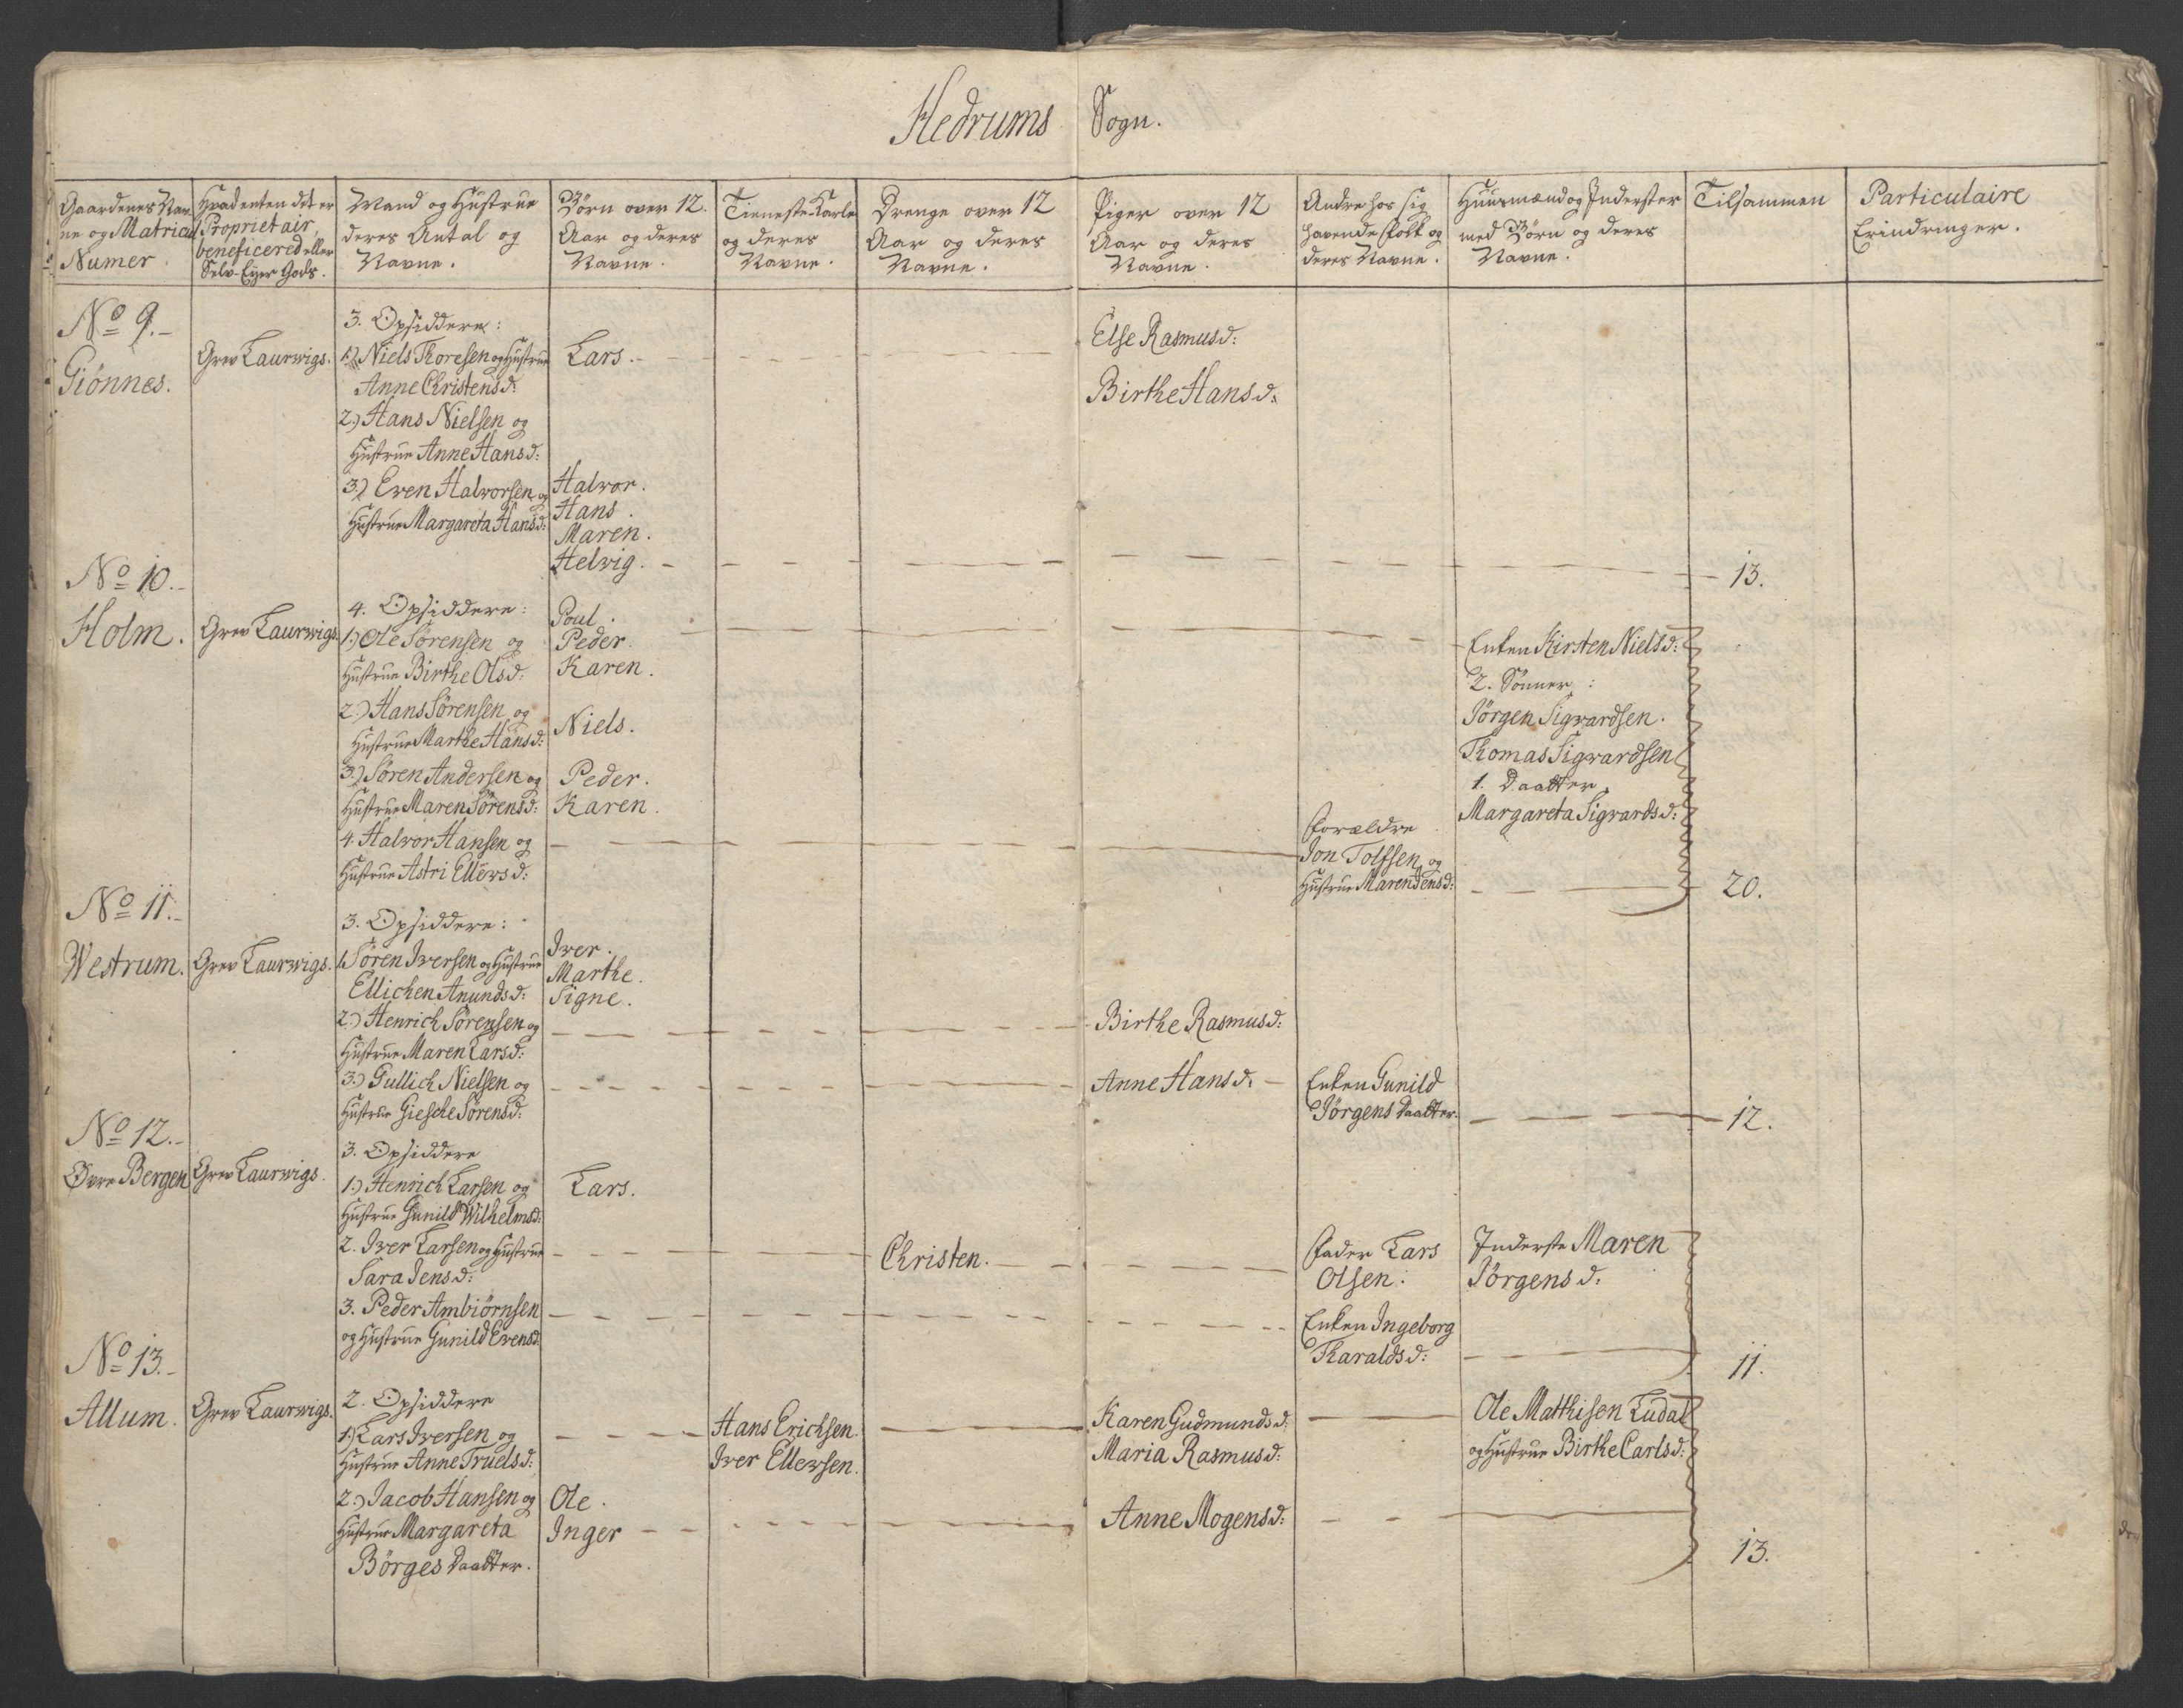 Hedrums Sogn.
Gaardenes Nav-
ne og Matricul
Numer.
Hvad enten det er
Proprietair,
beneficered eller
Selv-Eyer Gods.
Mand og Hustrue
deres Antal og
Navne.
Börn over 12.
Aar og deres
Navne.
Tieneste-Karle
og deres
Navne.
Drenge over 12
Aar og deres
Navne.
Piger over 12
Aar og deres
Navne.
Andre hos sig
havende Folk og
deres Navne.
Huusmænd og Inderster
med Börn og deres
Navne.
Tilsammen
Particulaire
Erindringer.
No 9.
Giönnes.
Grev Laurwigs.
3. Opsiddere:
1.) Niels Thoresen og Hustrue
Anne Christensd:
2.) Hans Nielsen og
Hustrue Anne Hansd:
3.) Even Halvorsen og
Hustrue Margareta Hansd:
Lars.
Halvor.
Hans.
Maren.
Helvig.
Else Rasmusd:
Birthe Hansd:
13.
No 10.
Holm.
Grev Laurwigs.
4. Opsiddere:
1.) Ole Sörensen og
Hustrue Birthe Olsd:
2.) Hans Sörensen og
Hustrue Marthe Hansd:
3.) Sören Andersen og
Hustrue Maren Sörensd:
4. Halvor Hansen og
Hustrue Astri Ellewsd:
Poul.
Peder.
Karen.
Niels.
Peder.
Karen.
Forældre
Jon Tolfsen og
Hustrue Maren Jensd:
Enken Kirsten Nielsd:
2. Sönner:
Jörgen Sigvardsen.
Thomas Sigvardsen
1. Daatter.
Margareta Sigvardsd:
20.
No 11.
Westrum.
Grev Laurwigs.
3. Opsiddere:
1. Sören Iversen og Hustrue
Ellichen Anundsd:
2.) Henrich Sörensen og
Hustrue Maren Larsd:
3.) Gullich Nielsen og
Hustrue Giesche Sörensd:
Iver.
Marthe.
Signe.
Birthe Rasmusd:
Anne Hansd:
Enken Gunild
Jörgens Daatter.
12.
No 12.
Øvre Bergen
Grev Laurwigs.
3. Opsiddere
1.) Henrich Larsen og
Hustrue Gunild Wilhelmsd:
2. Iver Larsen og Hustrue
Sara Jensd:
3. Peder Ambiörnsen
og Hustrue Gunild Evensd:
Lars.
Christen.
Fader Lars
Olsen.
Enken Ingeborg
Tharaldsd:
Inderste Maren
Jörgensd:
11.
No 13.
Allum.
Grev Laurwigs.
2. Opsiddere
1.) Lars Iversen og
Hustrue Anne Truelsd:
2.) Jacob Hansen og
Hustrue Margareta
Börges Daatter.
Ole.
Inger
Hans Erichsen.
Iver Ellewsen.
Karen Gudmundsd:
Maria Rasmusd:
Anne Mogensd:
Ole Matthisen Ludal
og Hustrue Birthe Carlsd:
13.